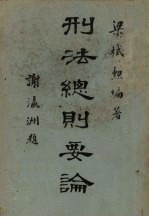 梁恢烈編著
刑法總則要論
謝瀛洲題